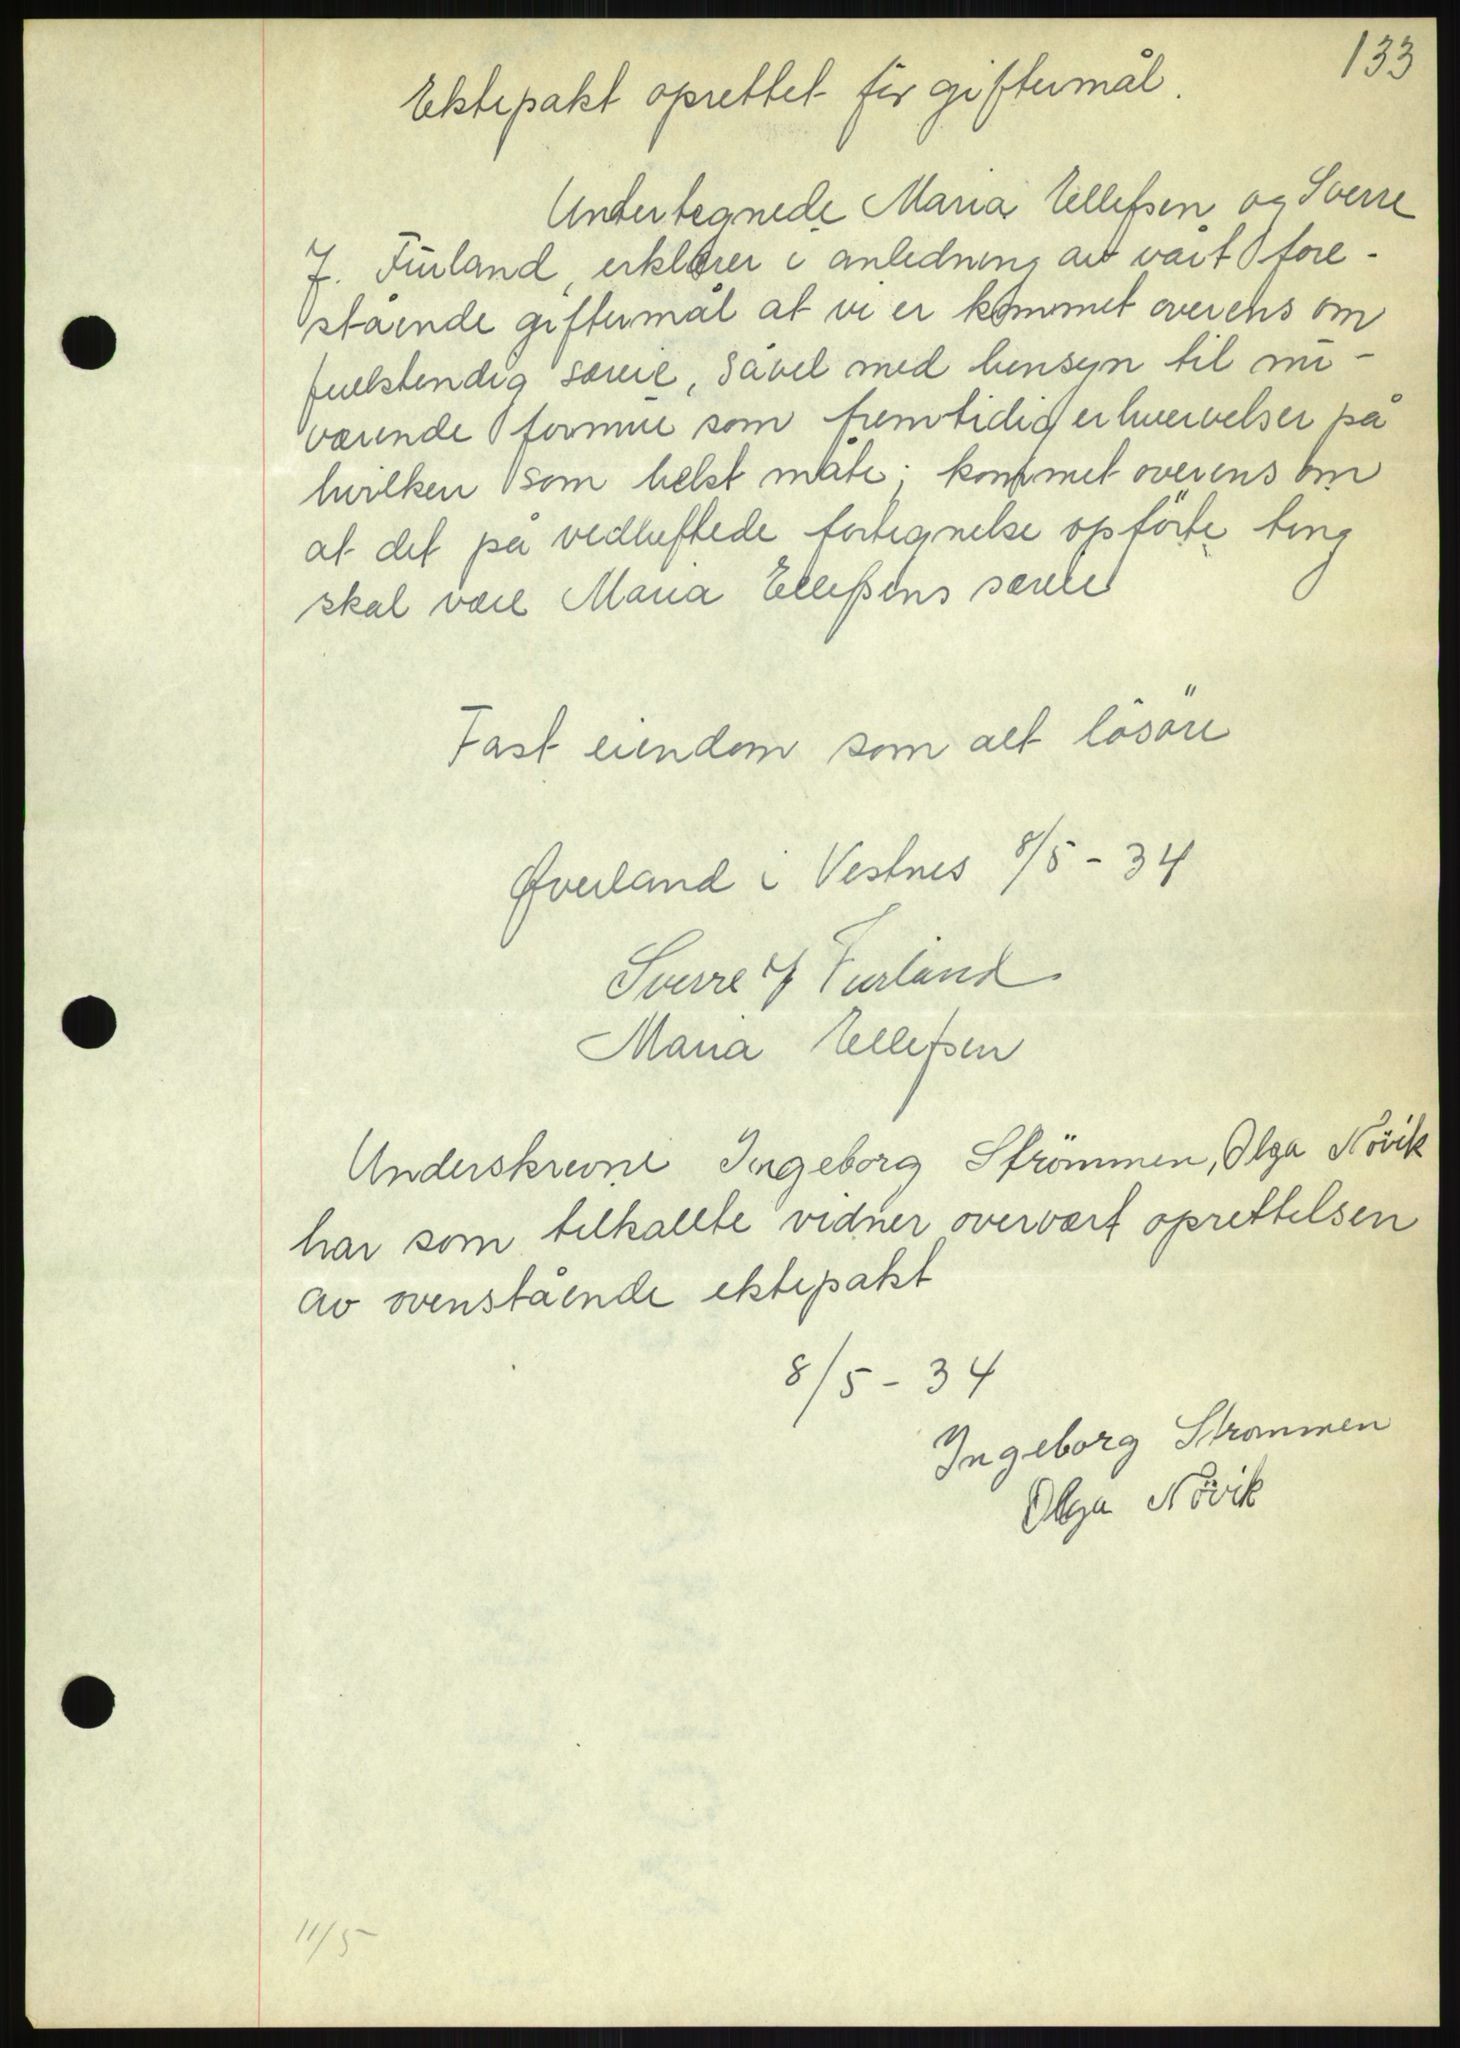 133
Ektepakt oprettet för giftermål.
Undertegnede Maria Ellefsen og Sverre
J. Furland, erklærer i anledning av vårt fore-
stående giftermål at vi er kommet overens om
fuldstendig særeie, såvel med hensyn til nu-
værende formue som fremtidig erhvervelser på
hvilken som helst måte; kommet overens om
at det på vedheftede fortegnelse opförte ting
skal være Maria Ellefsens særeie
Fast eiendom som alt lösöre
Øverland i Vestnes 8/5-34
Sverre J Furland
Maria Ellefsen
Underskrevne Ingeborg Strömmen, Olga Növik
har som tilkallte vidner overvært oprettelsen
av ovenstående ektepakt
8/5-34
Ingeborg Strommen
Olga Növik
11/5